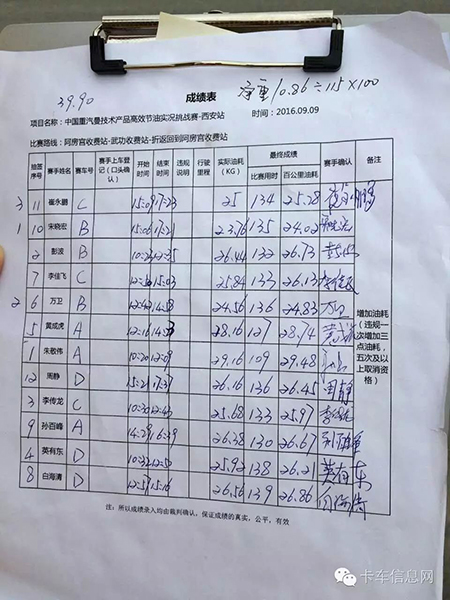 39.90
净重/0.86÷115×100
成绩表
项目名称：中国重汽曼技术产品高效节油实况挑战赛-西安站
时间：2016.09.09
比赛路线：阿房宫收费站-武功收费站-折返回到阿房宫收费站
抽签序号 选手姓名 赛车号 赛手上车登记（口头确认） 开始时间 结束时间 违规说明 行驶里程 实际油耗（KG） 最终成绩 比赛用时 百公里油耗 赛手确认 备注
3 11 崔永鹏 C 15:09 17:23 25 134 25.28
1 10 朱晓宏 B 15:06 17:21 23.76 135 24.02
2 彭波 B 10:23 12:35 26.44 132 26.73
7 李佳飞 C 12:50 15:03 25.84 133 26.13
2 6 万卫 B 12:42 14:58 24.56 136 24.83 万卫
5 黄成虎 A 12:16 14:23 28.16 127 28.74
1 朱敬伟 A 10:20 12:09 29.16 109 29.48
12 周静 D 15:21 17:37 26.16 136 26.45 周静
3 李传龙 C 10:30 12:43 25.68 133 25.97
9 孙百峰 A 14:29 16:39 26.38 130 26.67
4 英有东 D 10:32 12:50 25.92 138 26.21 英有东
8 白海清 D 12:57 15:16 26.56 139 26.86
增加油耗（违规一次增加三点油耗，五次及以上取消资格）
注：所以成绩录入均由裁判确认，保证成绩的真实，公平，有效
卡车信息网